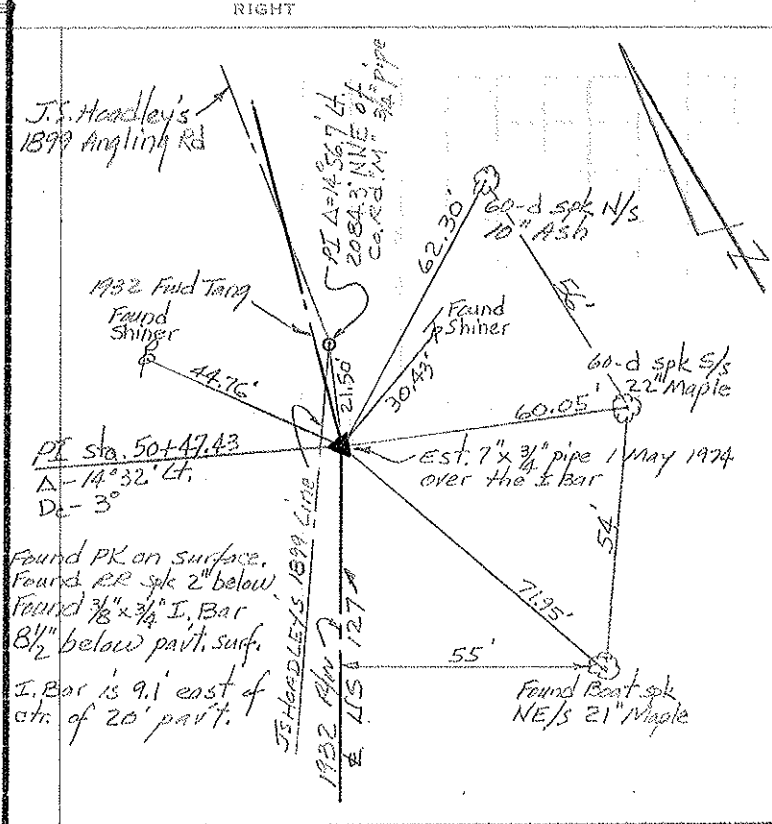 RIGHT
J.S. Hoadley's
1899 Angling Rd
PI Δ=14°56 1/2' Lt.
2084.3' NNE of
Co. Rd. "M" 3/4" pipe
60-d spk N/s
10" Ash
62.30'
1932 Fwd Tang
Found
Shiner
Found
Shiner
56'
44.76'
21.50'
30.43'
60-d spk S/s
22" Maple
60.05'
PI sta. 50+47.43
Δ-14°32' Lt.
Dc-3°
Est. 7"x 3/4" pipe 1 May 1974
over the I Bar
54'
Found PK on surface.
Found RR spk 2" below
Found 3/8"x 3/4" I. Bar
8 1/2" below pav't. surf.
I. Bar is 9.1' east of
ctr. of 20' pav't.
JS HOADLEY'S 1899 Line
1932 R/W
℄ US 127
71.95'
55'
Found Boat spk
NE/s 21" Maple
N